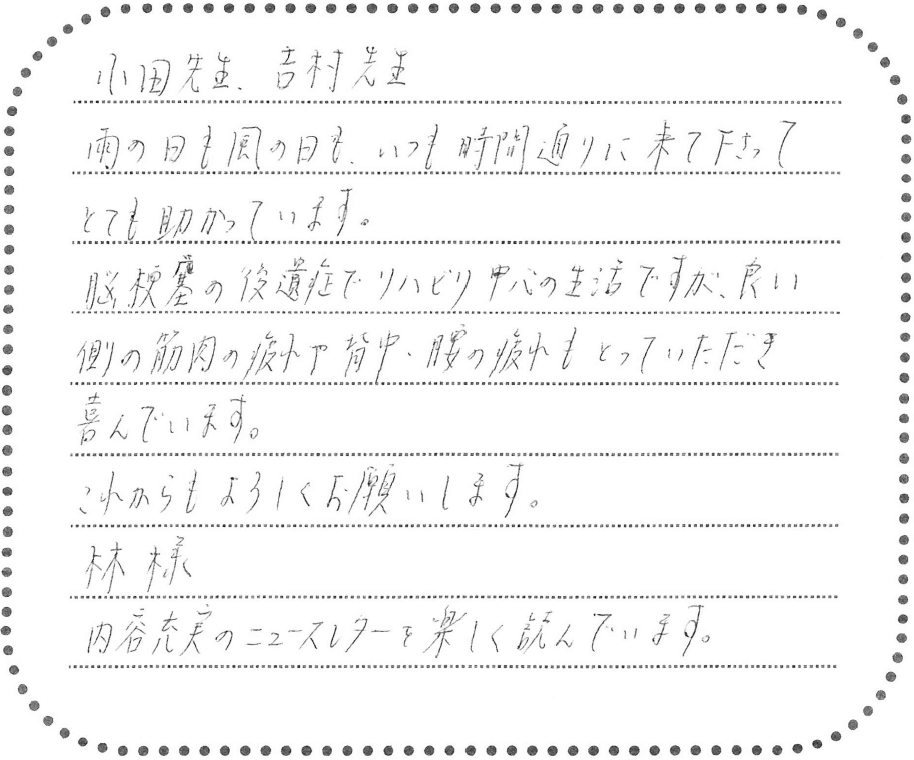 小田先生、吉村先生
雨の日も風の日も、いつも時間通りに来て下さって
とても助かっています。
脳梗塞の後遺症でリハビリ中心の生活ですが、良い
側の筋肉の疲れや背中・腰の疲れもとっていただき
喜んでいます。
これからもよろしくお願いします。
林様
内容充実のニュースレターを楽しく読んでいます。